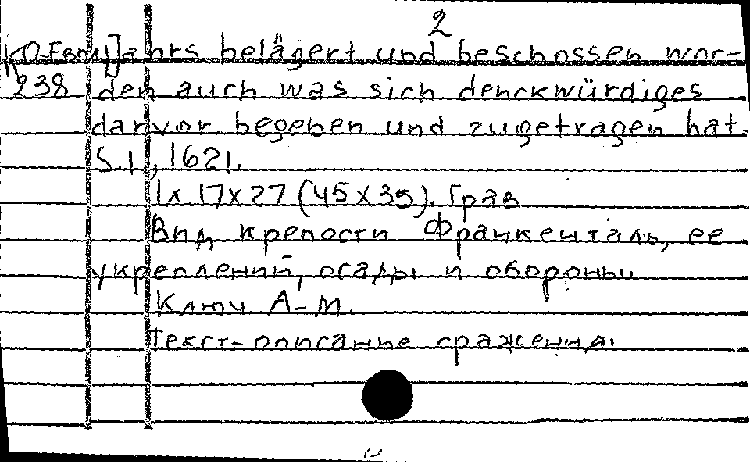 2
jahrs belägert und beschossen wor-
238 den auch was sich denckwürdiges
darvor begeben und zugetragen hat.
S.l., 1621.
1x 17x27 (45x35). Грав
Вид крепости Франкенталь, ее
укреплений, осады и обороны
Ключ А-М.
Текст-описание сражения